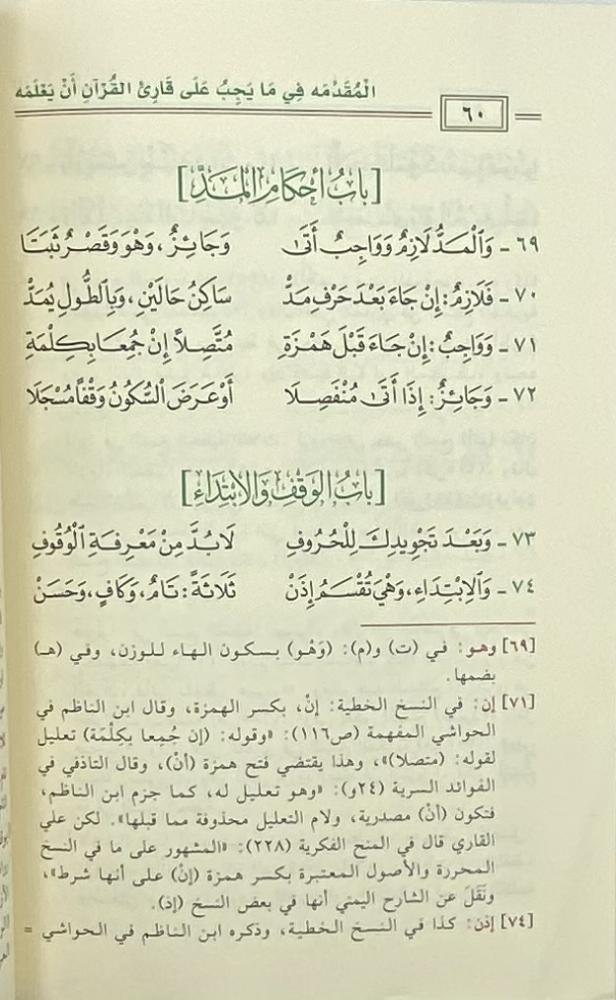 الْمُقَدِّمَه فِي مَا يَجِبُ عَلَى قَارِئِ القُرْآنِ أَنْ يَعْلَمَه
٦٠
[بَابُ أَحْكَامِ المَدِّ]
٦٩ - وَالْمَدُّ لَازِمٌ وَوَاجِبٌ أَتَى وَجَائِزٌ، وَهْوَ وَقَصْرٌ ثَبَتَا
٧٠ - فَلَازِمٌ: إِنْ جَاءَ بَعْدَ حَرْفِ مَدّْ سَاكِنُ حَالَيْنِ، وَبِالطُّولِ يُمَدّْ
٧١ - وَوَاجِبٌ: إِنْ جَاءَ قَبْلَ هَمْزَةِ مُتَّصِلاً إِنْ جُمِعَا بِكِلْمَةِ
٧٢ - وَجَائِزٌ: إِذَا أَتَى مُنْفَصِلَا أَوْ عَرَضَ السُّكُونُ وَقْفاً مُسْجَلَا
[بَابُ الوَقْفِ وَالِابْتِدَاءِ]
٧٣ - وَبَعْدَ تَجْوِيدِكَ لِلْحُرُوفِ لَا بُدَّ مِنْ مَعْرِفَةِ الْوُقُوفِ
٧٤ - وَالِابْتِدَاءِ، وَهْيَ تُقْسَمُ إِذَنْ ثَلَاثَةً: تَامٌ، وَكَافٍ، وَحَسَنْ
[٦٩] وهو: في (ت) و(م): (وَهْو) بسكون الهاء للوزن، وفي (هـ)
بضمها.
[٧١] إن: في النسخ الخطية: إنْ، بكسر الهمزة، وقال ابن الناظم في
الحواشي المفهمة (ص١١٦): «وقوله: (إن جُمِعا بِكِلْمَة) تعليل
لقوله: (متصلا)»، وهذا يقتضي فتح همزة (أنْ)، وقال التاذفي في
الفوائد السرية (٢٤و): «وهو تعليل له، كما جزم ابن الناظم،
فتكون (أنْ) مصدرية، ولام التعليل محذوفة مما قبلها». لكن علي
القاري قال في المنح الفكرية (٢٢٨): «المشهور على ما في النسخ
المحررة والأصول المعتبرة بكسر همزة (إنْ) على أنها شرط»،
ونَقَلَ عن الشارح اليمني أنها في بعض النسخ (إذ).
[٧٤] إذن: كذا في النسخ الخطية، وذكره ابن الناظم في الحواشي =